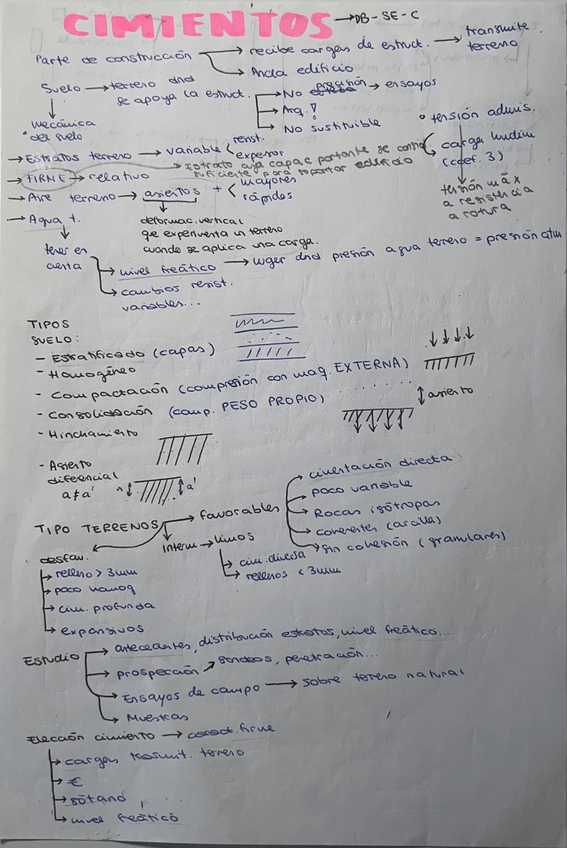 CIMIENTOS → DB-SE-C
Parte de construcción → recibe cargas de estruct. → transmite terreno
→ Ancla edificio
Suelo → terreno dnd se apoya la estruct.
No precisión → ensayos
Arq. !
No sustituible
mecánica del suelo
• tensión admis.
carga hundim (coef. 3)
tensión máx a resistencia a rotura
→ Estratos terreno → variable < resist. espesor
→ FIRME → relativo → Estrato cuya capac portante se consi suficiente para soportar edificio
→ Aire terreno → asientos + < mayores rápidos
deformac. vertical que experimenta un terreno cuando se aplica una carga.
→ Agua t.
tener en cuenta
→ nivel freático → lugar dnd presión agua terreno = presión atm
→ cambios resist. variables...
TIPOS
SUELO:
- Estratificado (capas)
- Homogéneo
- Compactación (compresión con maq. EXTERNA)
- Consolidación (comp. PESO PROPIO)
asiento
- Hinchamiento
- Asiento diferencial
a ≠ a'
a a'
TIPO TERRENOS → favorables
cimentación directa
poco variable
Rocas isótropas
coherentes (arcilla)
sin cohesión (granulares)
Interm → limos
→ cim. directa
→ rellenos < 3mm
desfav.
→ relleno > 3mm
→ poco homog
→ cim. profunda
→ expansivos
Estudio → antecedentes, distribución estratos, nivel freático...
→ prospección → sondeos, penetración...
→ Ensayos de campo → sobre terreno natural
→ Muestras
Elección cimiento → caract. firme
→ cargas transmit. terreno
→ €
→ sótano
→ nivel freático